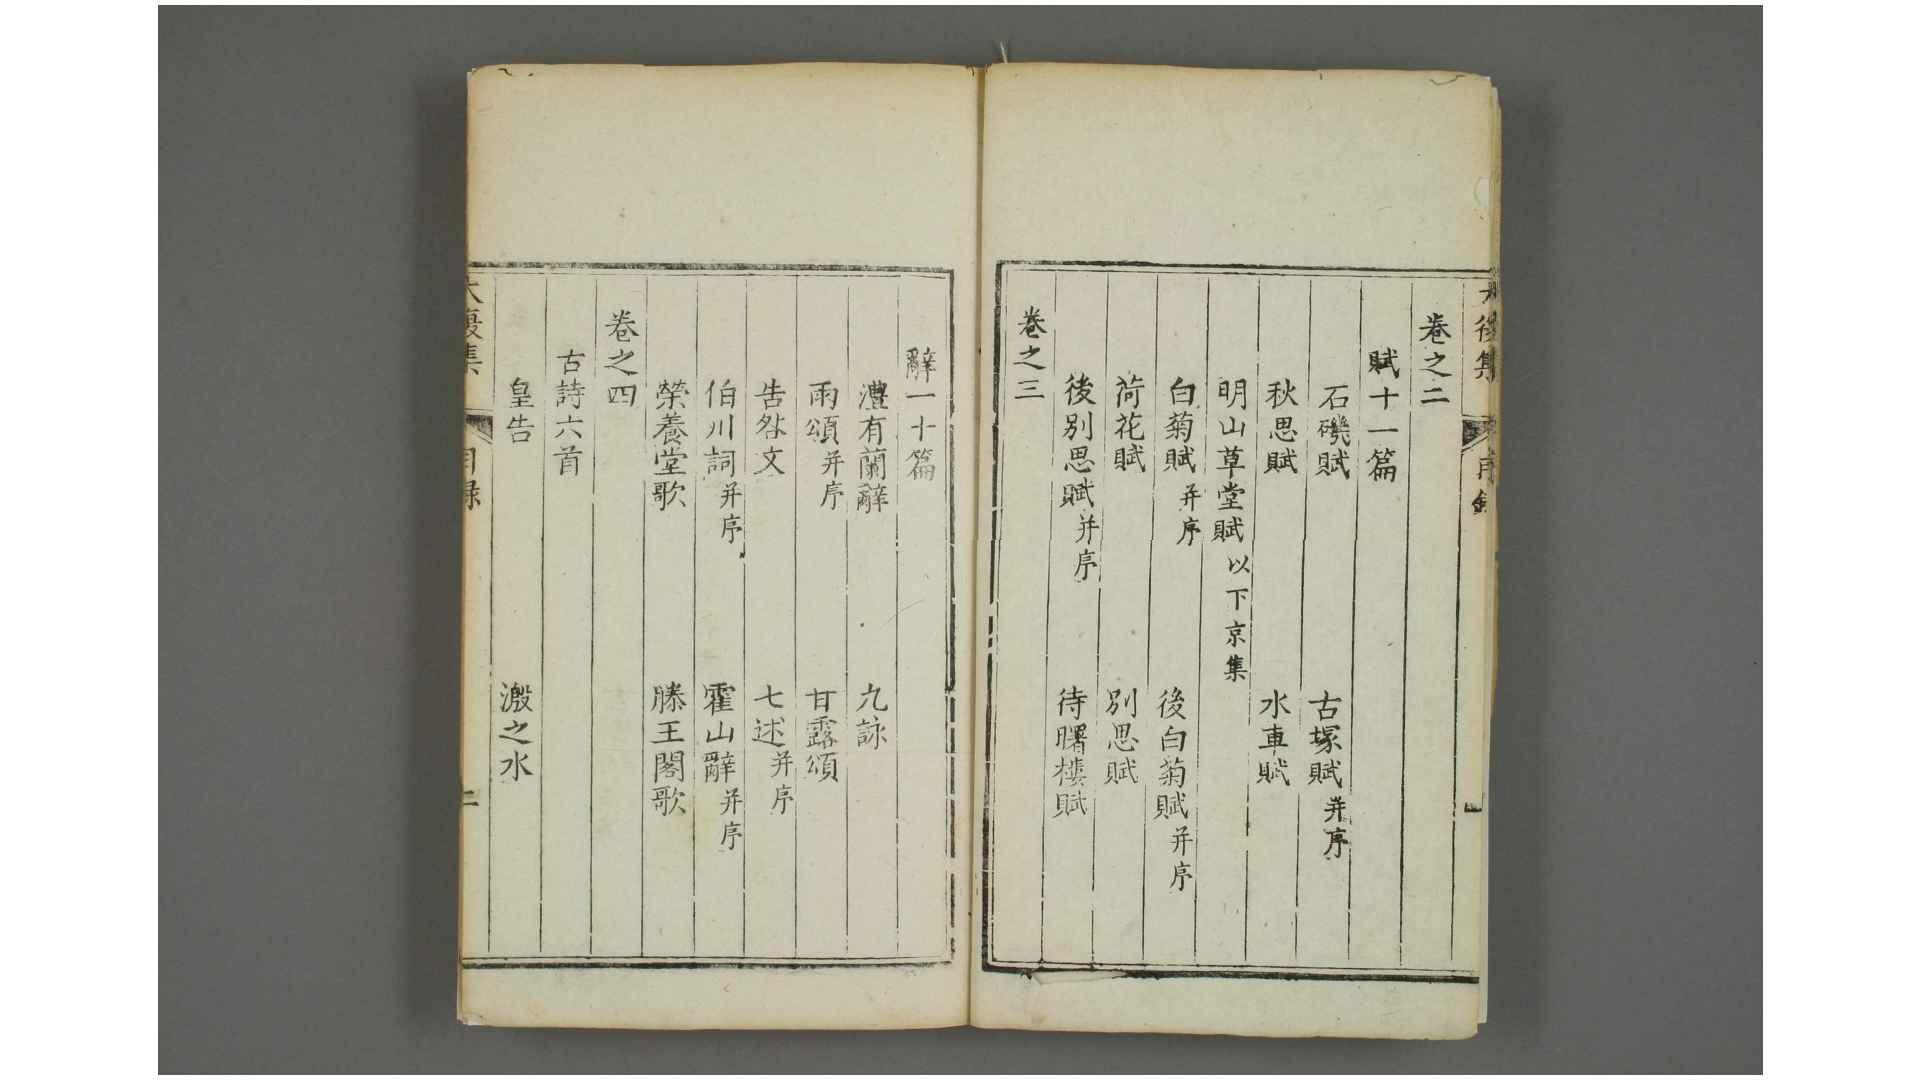 卷之二
賦十一篇
石磯賦 古塚賦并序
秋思賦 水車賦
明山草堂賦以下京集
白菊賦并序 後白菊賦并序
荷花賦 別思賦
後別思賦并序 待曙樓賦
卷之三
辭一十篇
灃有蘭辭 九詠
雨頌并序 甘露頌
告咎文 七述并序
伯川詞并序 霍山辭并序
榮養堂歌 滕王閣歌
卷之四
古詩六首
皇告 溵之水
大復集 目錄 二